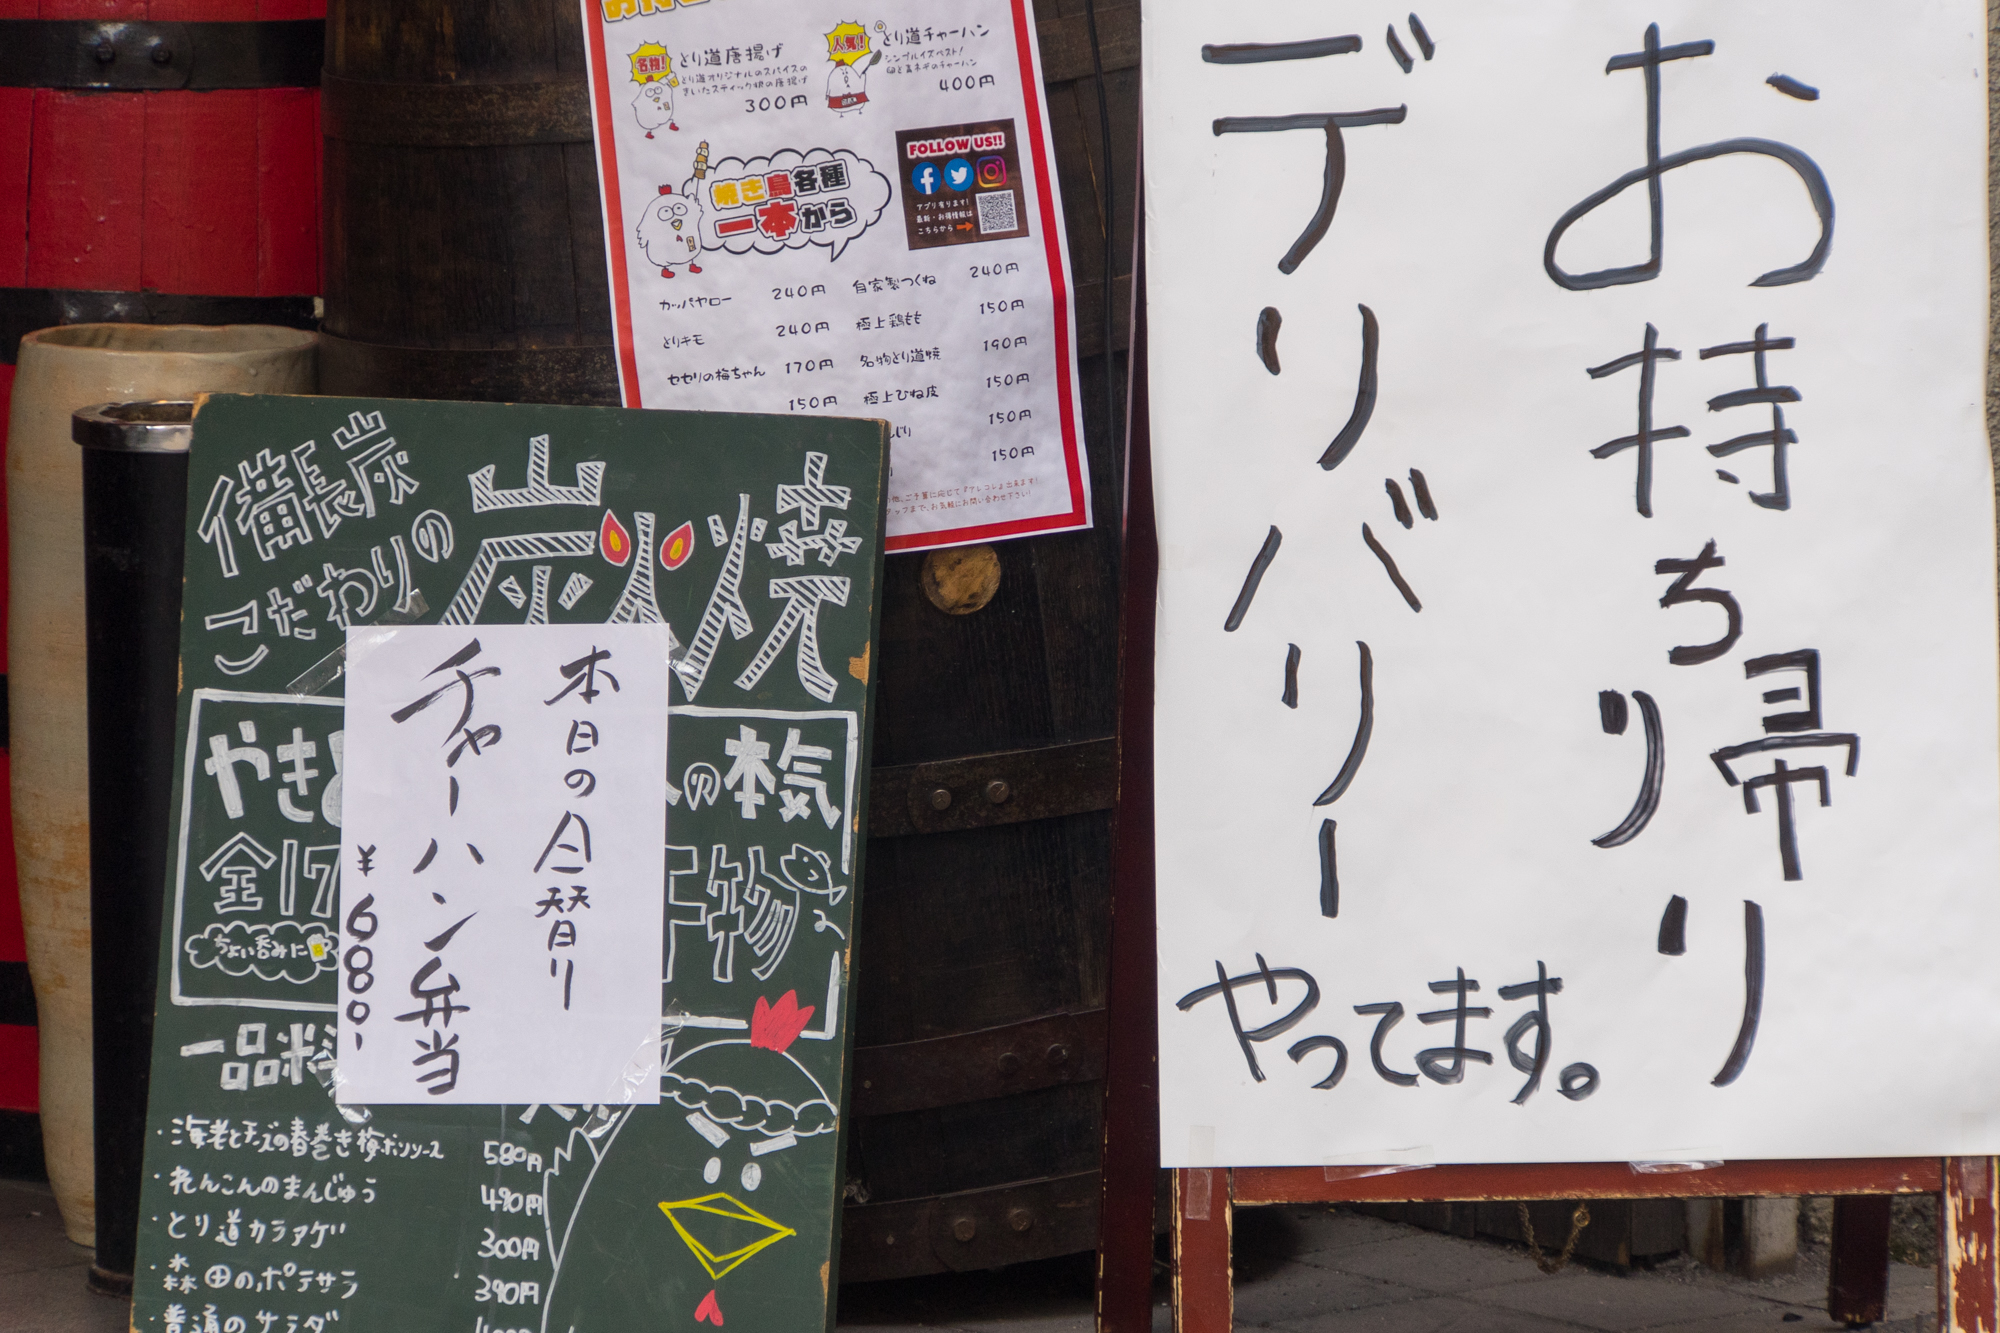 名物!
とり道唐揚げ
とり道オリジナルのスパイスの
きいたスティック状の唐揚げ
300円
人気!
とり道チャーハン
シンプルイズベスト!
卵と長ネギのチャーハン
400円
焼き鳥各種
一本から
FOLLOW US!!
アプリ有ります!
最新・お得情報は
こちらから
カッパヤロー 240円
とりキモ 240円
セセリの梅ちゃん 170円
150円
自家製つくね 240円
極上鶏もも 150円
名物とり道焼 190円
極上ひね皮 150円
150円
150円
備長炭
こだわりの
炭火焼
やき
の本気
全17
干物
ちょい呑みに
一品料
・海老とチーズの春巻き梅ポンソース 580円
・れんこんのまんじゅう 490円
・とり道カラアゲ 300円
・森田のポテサラ 390円
・普通のサラダ
本日の日替り
チャーハン弁当
¥680-
お持ち帰り
デリバリー
やってます。